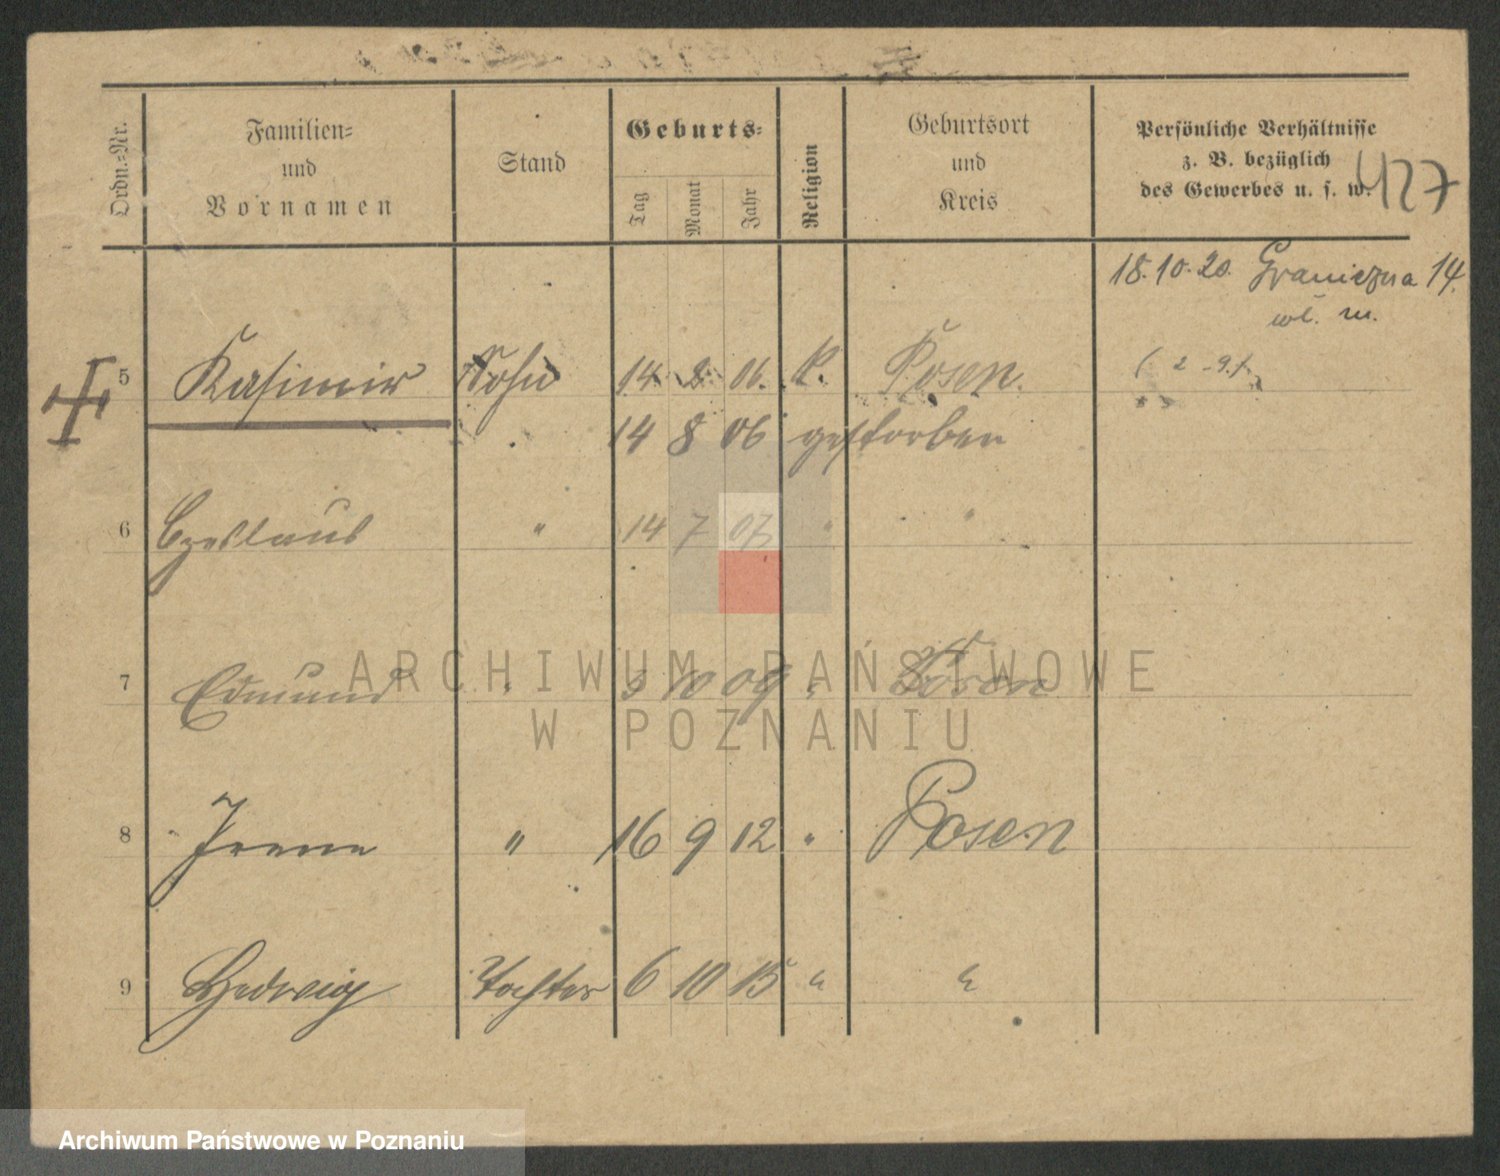 Ordn.-Nr.
Familien-
und
Vornamen
Stand
Geburts-
Tag
Monat
Jahr
Religion
Geburtsort
und
Kreis
Persönliche Verhältnisse
z. B. bezüglich
des Gewerbes u. s. w.
427
18.10.20. Graniczna 14.
wł. m.
5 Kasimir Sohn 14 8 06. K. Posen.
14 8 06 gestorben
6 Czeslaus " 14 7 07 " "
7 Edmund " 3 10 09 " Posen
8 Irene " 16 9 12 " Posen
9 Hedwig Tochter 6 10 15 " "
ARCHIWUM PAŃSTWOWE
W POZNANIU
Archiwum Państwowe w Poznaniu